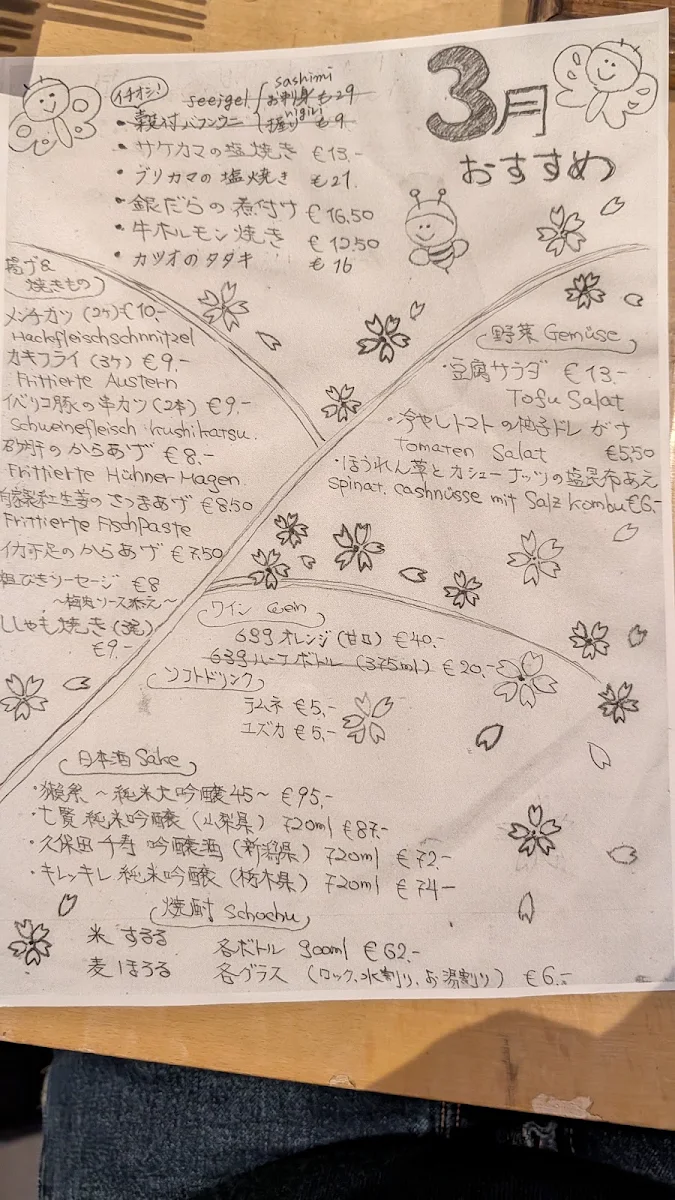 3月
おすすめ
イチオシ!
seeigel sashimi お刺身 €29
殻付バフンウニ nigiri 握り €9
・サケカマの塩焼き €13.-
・ブリカマの塩焼き €21.
・銀だらの煮付け €16.50
・牛ホルモン焼き €12.50
・カツオのタタキ €16
揚げ&
焼きもの
メンチカツ (2ケ) €10.-
Hackfleischschnnitzel
カキフライ (3ケ) €9.-
Frittierte Austern
イベリコ豚の串カツ (2本) €9.-
Schweinefleisch kushikatsu.
砂肝のからあげ €8.-
Frittierte Hühner Magen.
自家製紅生姜のさつまあげ €8.50
Frittierte Fischpaste
イカ下足のからあげ €7.50
粗びきソーセージ €8
~梅肉ソース添え~
ししゃも焼き (3尾)
€9.-
野菜 Gemüse
・豆腐サラダ €13.-
Tofu Salat
・冷やしトマトの柚子ドレがけ
Tomaten Salat €5,50
・ほうれん草とカシューナッツの塩昆布あえ
Spinat, Cashnüsse mit Salz kombu €6.-
ワイン Wein
689 オレンジ (甘口) €40.-
689 ハーフボトル (375ml) €20.-
ソフトドリンク
ラムネ €5.-
ユズカ €5.-
日本酒 Sake
・獺祭 ~純米大吟醸45~ €95.-
・七賢 純米吟醸 (山梨県) 720ml €87.-
・久保田 千寿 吟醸酒 (新潟県) 720ml €72.-
・キレッキレ 純米吟醸 (栃木県) 720ml €74-
焼酎 Schochu
米 するる 各ボトル 900ml €62.-
麦 ほろる 各グラス (ロック、水割り、お湯割り) €6.-